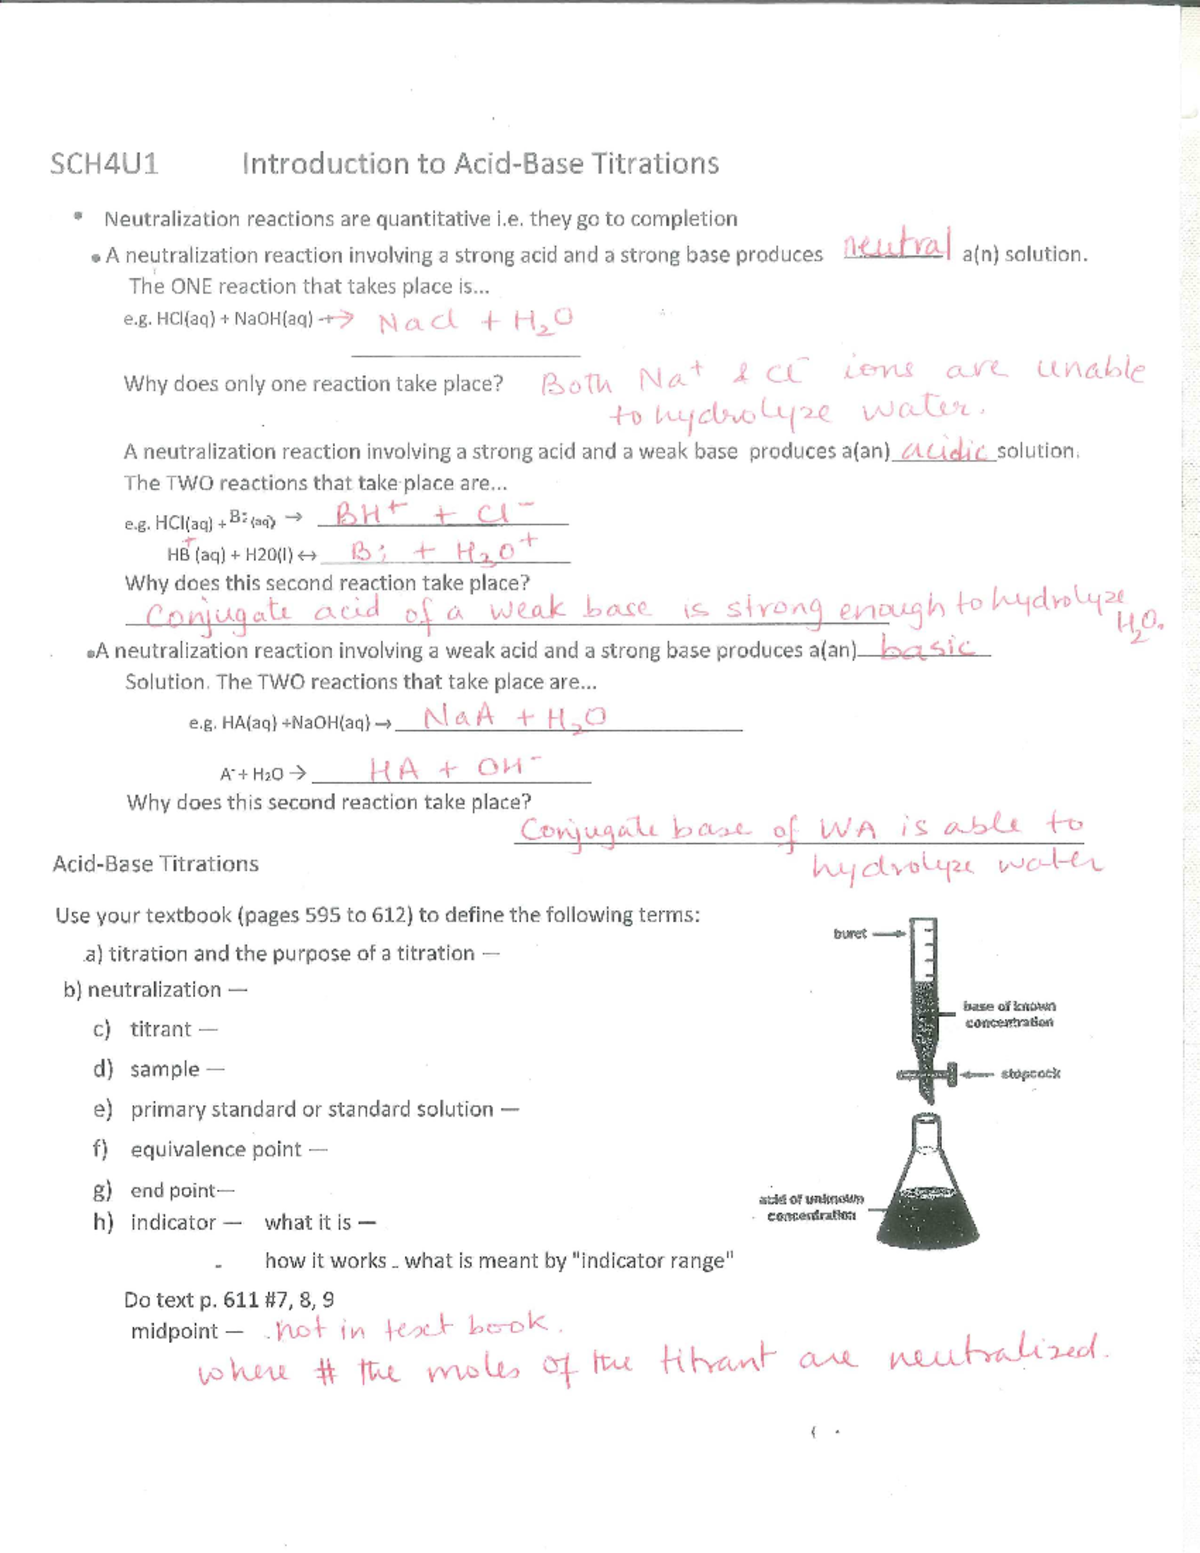 SCH4U1 Introduction to Acid-Base Titrations
• Neutralization reactions are quantitative i.e. they go to completion
• A neutralization reaction involving a strong acid and a strong base produces neutral a(n) solution.
The ONE reaction that takes place is...
e.g. HCl(aq) + NaOH(aq) → NaCl + H₂O
Why does only one reaction take place? Both Na⁺ & Cl⁻ ions are unable
to hydrolyze water.
A neutralization reaction involving a strong acid and a weak base produces a(an) acidic solution.
The TWO reactions that take place are...
e.g. HCl(aq) + B:(aq) → BH⁺ + Cl⁻
HB⁺ (aq) + H20(l) ↔ B: + H₃O⁺
Why does this second reaction take place?
Conjugate acid of a weak base is strong enough to hydrolyze
H₂O.
•A neutralization reaction involving a weak acid and a strong base produces a(an) basic
Solution. The TWO reactions that take place are...
e.g. HA(aq) +NaOH(aq) → NaA + H₂O
A⁻ + H₂O → HA + OH⁻
Why does this second reaction take place?
Conjugate base of WA is able to
hydrolyze water
Acid-Base Titrations
Use your textbook (pages 595 to 612) to define the following terms:
a) titration and the purpose of a titration —
b) neutralization —
c) titrant —
d) sample —
e) primary standard or standard solution —
f) equivalence point —
g) end point—
h) indicator — what it is —
- how it works - what is meant by "indicator range"
Do text p. 611 #7, 8, 9
midpoint — not in text book.
where # the moles of the titrant are neutralized.
buret
base of known
concentration
stopcock
acid of unknown
concentration